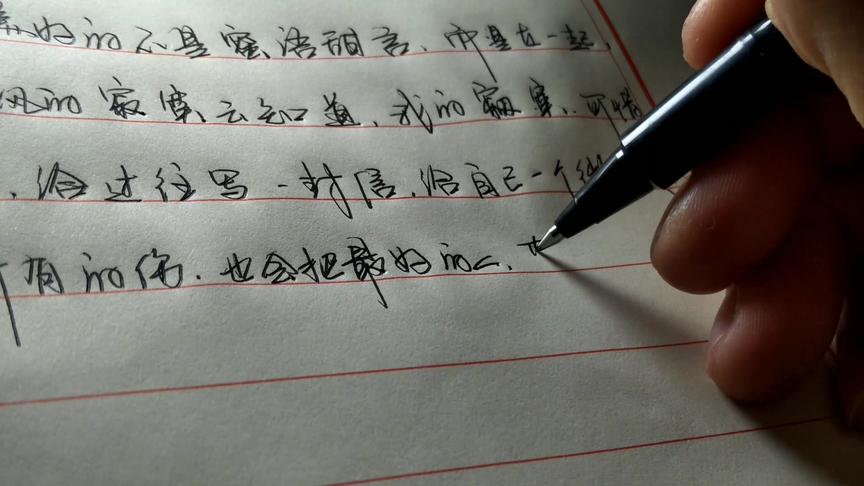 好的不是蜜语甜言、而是在一起、
风的寂寞、云知道、我的寂寞、可惜
、给过往写一封信、给自己一个
所有的伤、也会把最好的